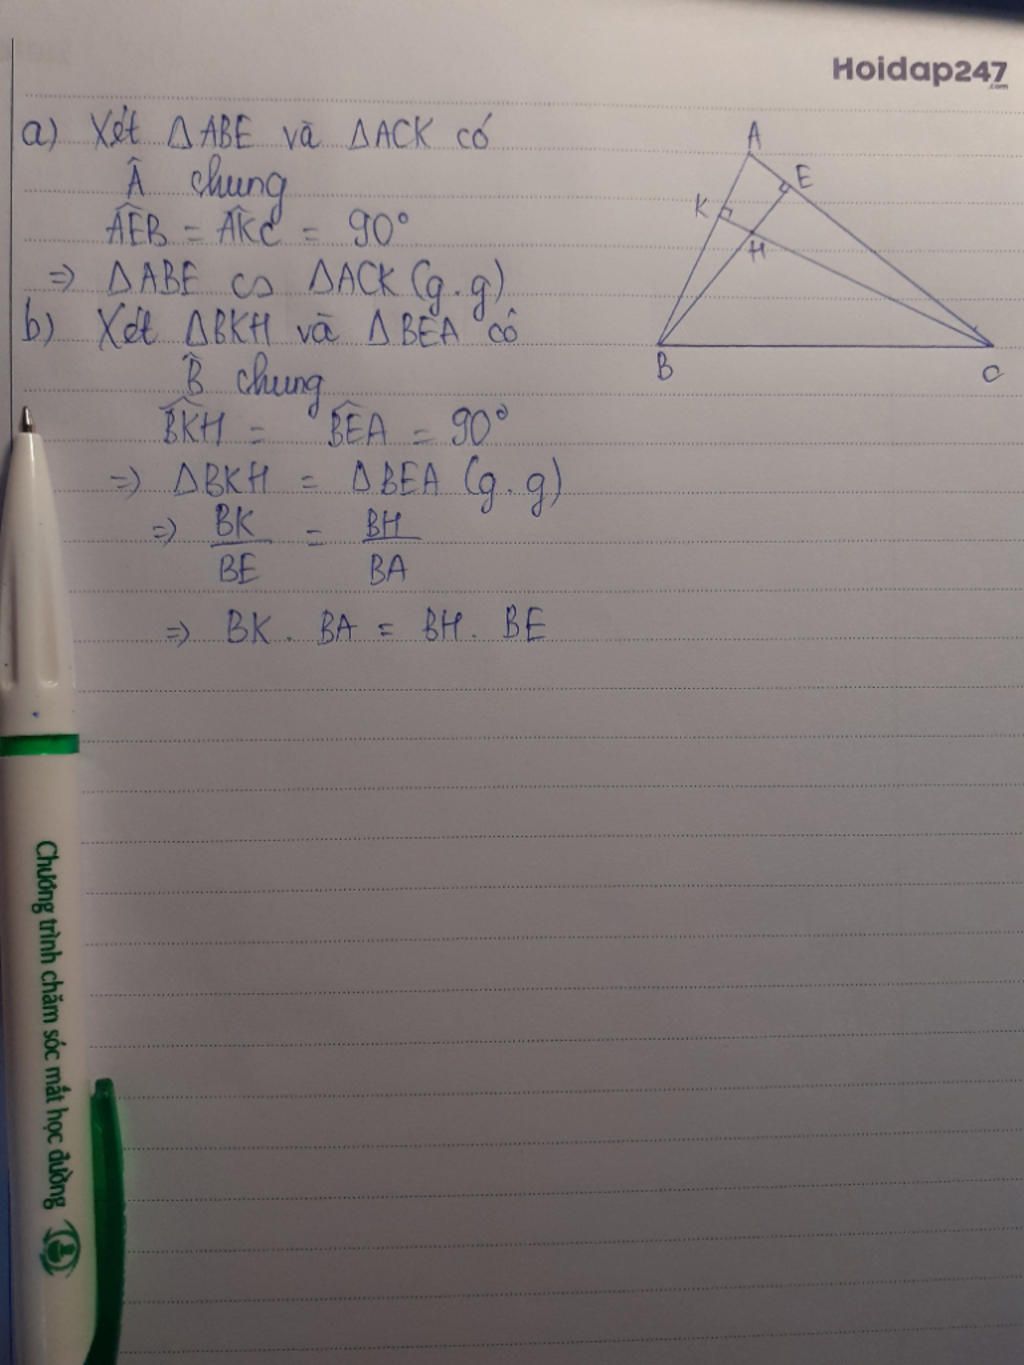 Hoidap247
.com
a) Xét ΔABE và ΔACK có
Â chung
AEB = AKC = 90°
=> ΔABE ∽ ΔACK (g.g)
b) Xét ΔBKH và ΔBEA có
B̂ chung
BKH = BEA = 90°
=> ΔBKH = ΔBEA (g.g)
=> BK/BE = BH/BA
=> BK . BA = BH . BE
A
E
K
H
B
C
Chương trình chăm sóc mắt học đường